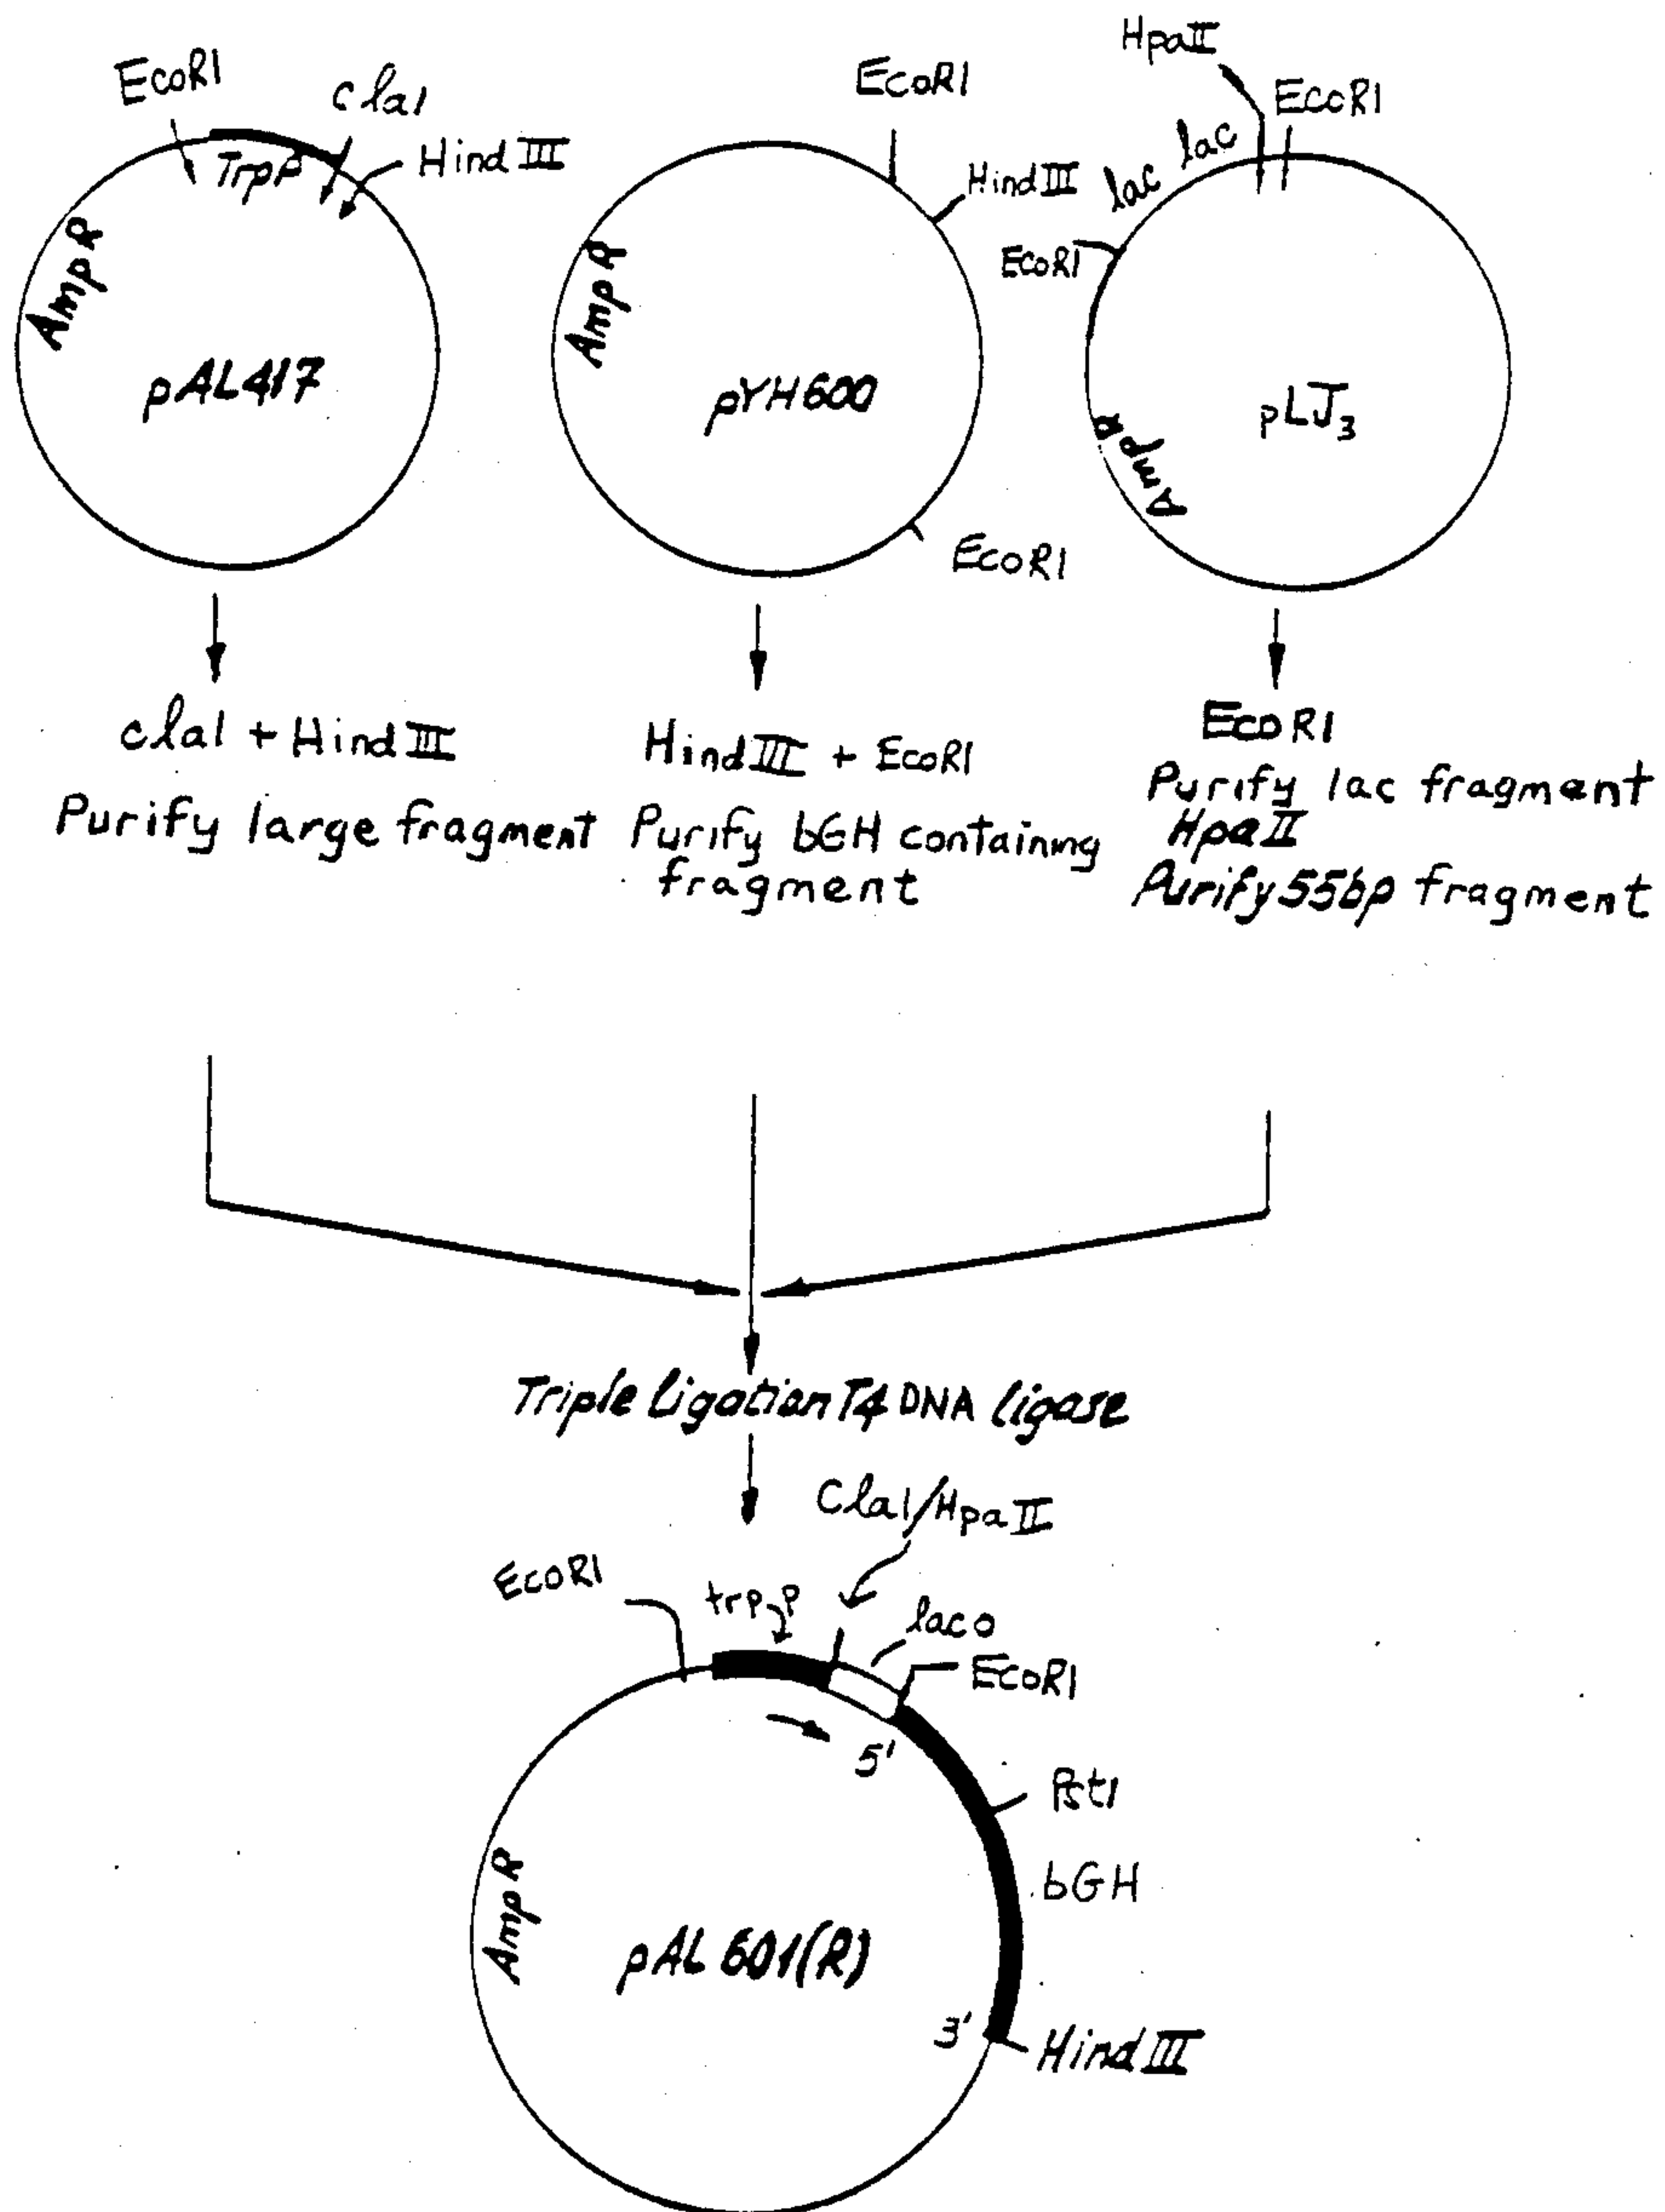 EcoRI
claI
HindIII
TrpP
AmpR
pAL417
EcoRI
HindIII
AmpR
pYH600
EcoRI
HpaII
EcoRI
lac lac
EcoRI
AmpR
pLJ3
claI + HindIII
Purify large fragment
HindIII + EcoRI
Purify bGH containing
fragment
EcoRI
Purify lac fragment
HpaII
Purify 55bp fragment
Triple Ligation T4 DNA ligase
ClaI/HpaII
EcoRI
trp P
lac o
EcoRI
5'
PstI
bGH
AmpR
pAL601(R)
3'
HindIII